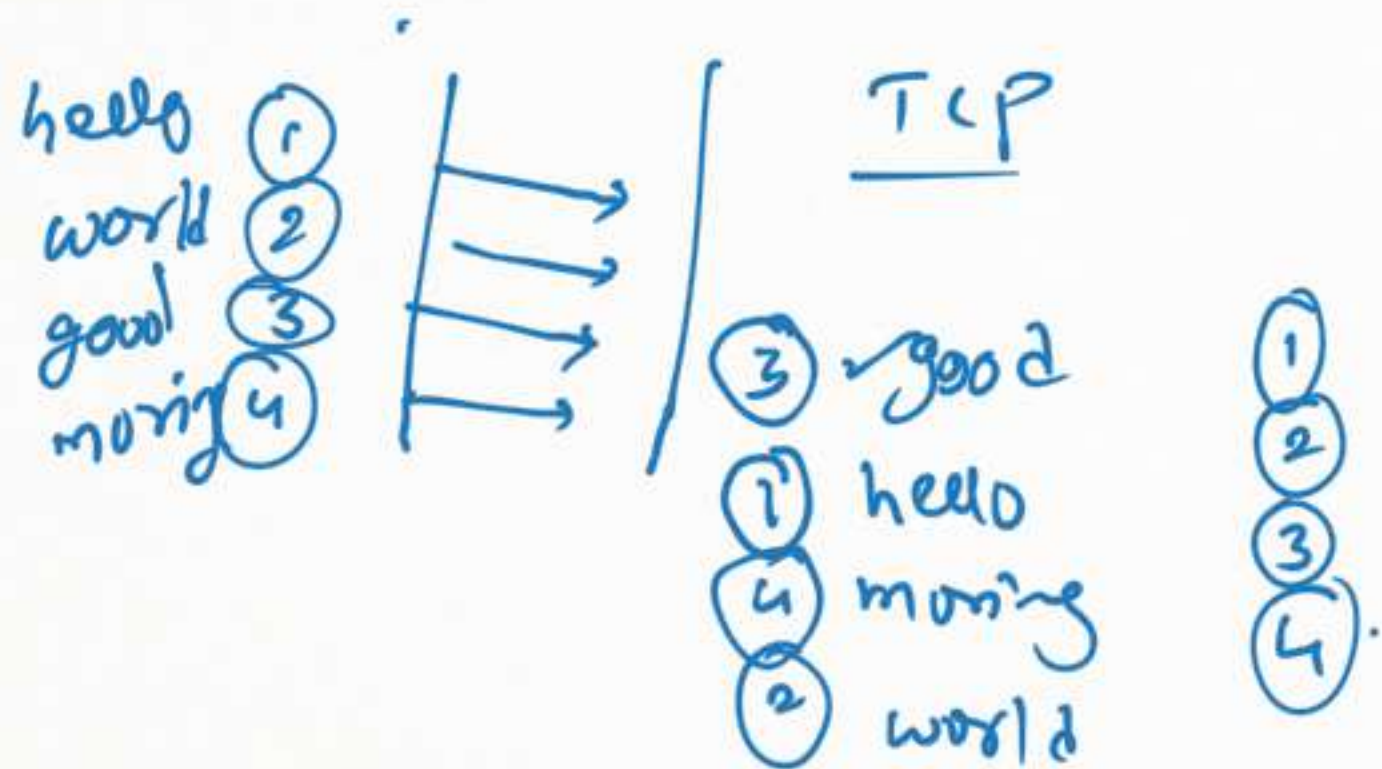 hello 1
world 2
good 3
moring 4
TCP
3 good
1 hello
4 moring
2 world
1
2
3
4